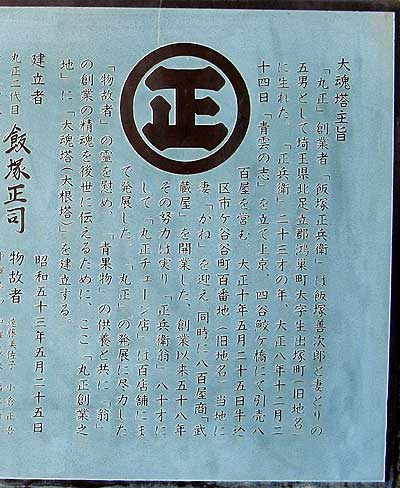 大魂塔主旨
「丸正」創業者「飯塚正兵衛」は飯塚善次郎と妻とりの
五男として埼玉県北足立郡鴻巣町大字生出塚町(旧地名)
に生れた。「正兵衛」二十三才の年、大正八年十二月二
十四日「青雲の志」を立て上京、四谷鮫ヶ橋にて引売八
百屋を営む 大正十年五月二十五日牛込
区市ケ谷谷町百番地(旧地名)当地に
妻「かね」を迎え 同時に八百屋商「武
蔵屋」を開業した、創業以来五十八年
その努力は実り「正兵衛翁」八十才に
して「丸正チェーン店」は百店舗にま
で発展した、「丸正」の発展に尽力した
「物故者」の霊を慰め、「青果物」の供養と共に「翁」
の創業の精魂を後世に伝えるために、ここ「丸正創業之
地」に「大魂塔(大根塔)」を建立する
正
昭和五十三年五月二十五日
建立者
物故者
丸正二代目 飯塚正司